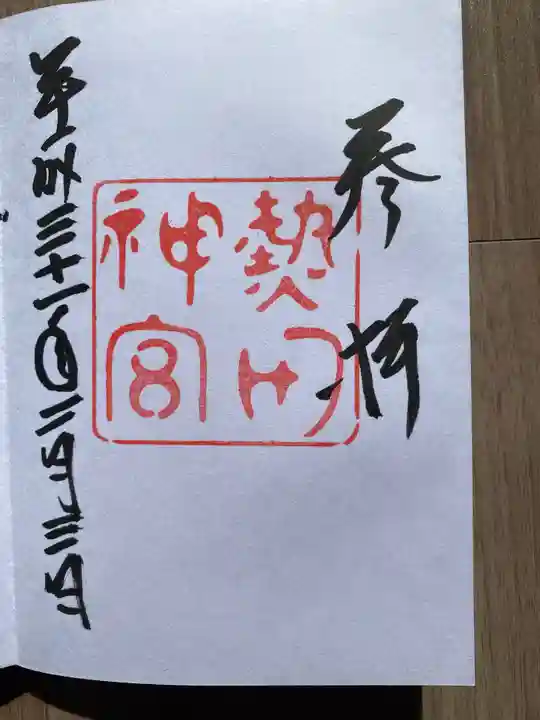 参拝
熱田
神宮
平成三十一年二月三日